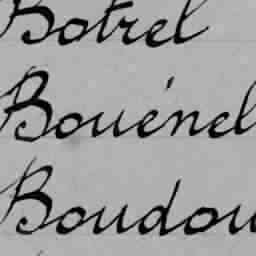 Botrel
Bouénel
Boudou